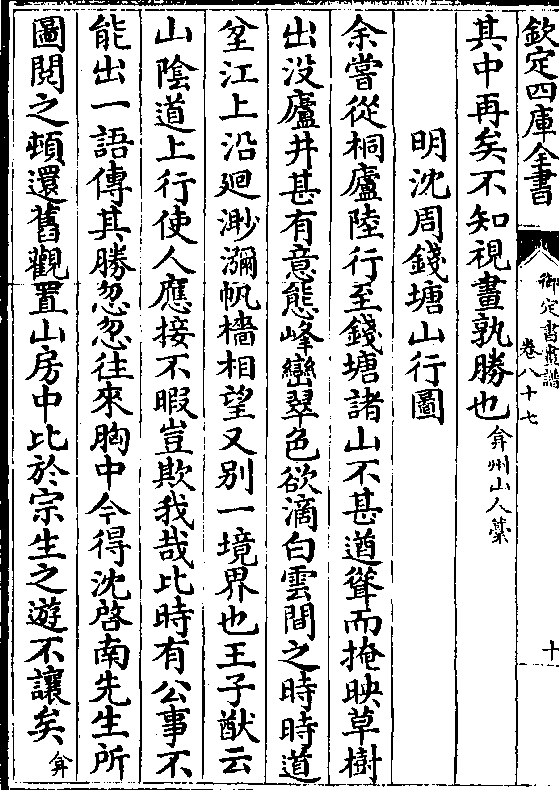 欽定四庫全書
御定書畫譜
卷八十七
十
其中再矣不知視畫孰勝也弇州山人藁
明沈周錢塘山行圖
余嘗從桐廬陸行至錢塘諸山不甚遒聳而掩映草樹
出没廬井甚有意態峰巒翠色欲滴白雲間之時時道
坌江上沿廻渺瀰帆檣相望又别一境界也王子猷云
山陰道上行使人應接不暇豈欺我哉比時有公事不
能出一語傳其勝忽忽往來胸中今得沈啓南先生所
圖閲之頓還舊觀置山房中比於宗生之遊不讓矣弇